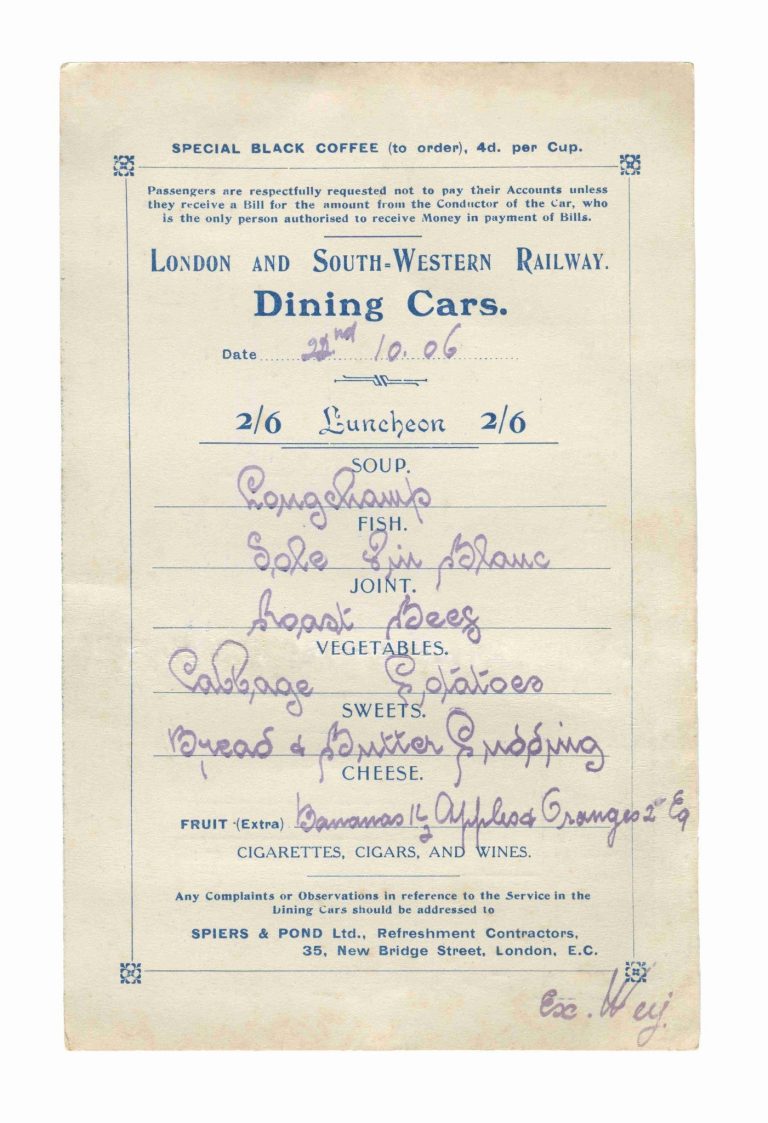 SPECIAL BLACK COFFEE (to order), 4d. per Cup.
Passengers are respectfully requested not to pay their Accounts unless
they receive a Bill for the amount from the Conductor of the Car, who
is the only person authorised to receive Money in payment of Bills.
LONDON AND SOUTH-WESTERN RAILWAY.
Dining Cars.
Date 22nd 10. 06
2/6 Luncheon 2/6
SOUP.
Longchamp
FISH.
Sole Vin Blanc
JOINT.
Roast Beef
VEGETABLES.
Cabbage Potatoes
SWEETS.
Bread & Butter Pudding
CHEESE.
FRUIT (Extra) Bananas 1½ Apples & Oranges 2d Ea
CIGARETTES, CIGARS, AND WINES.
Any Complaints or Observations in reference to the Service in the
Dining Cars should be addressed to
SPIERS & POND Ltd., Refreshment Contractors,
35, New Bridge Street, London, E.C.
Ex. Wey.